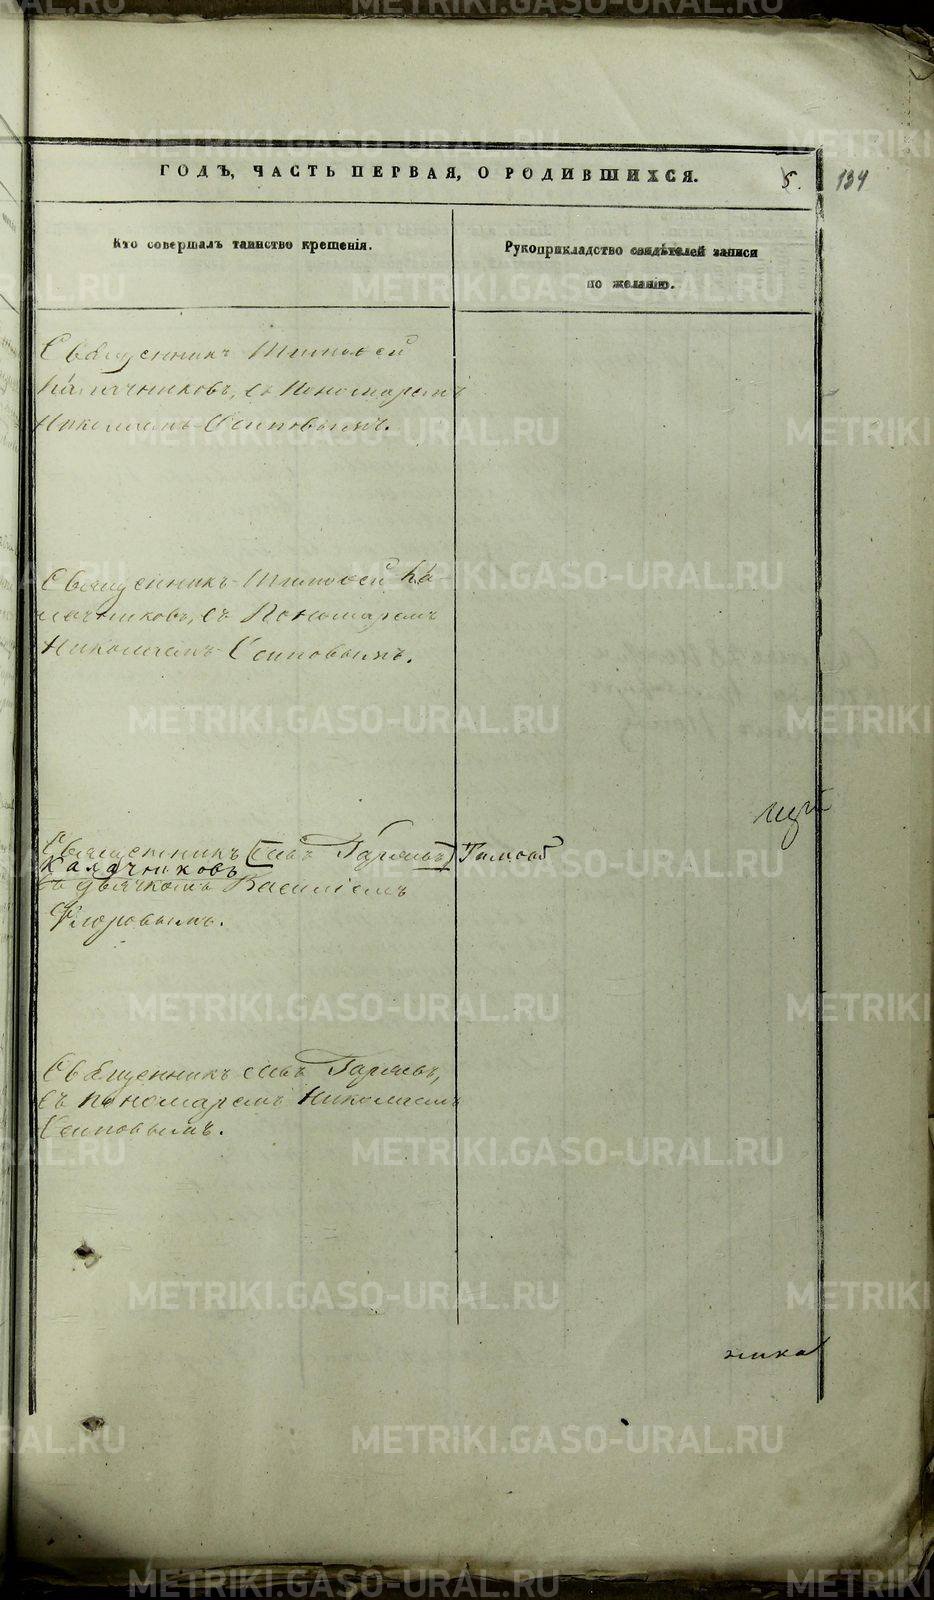 ГОДЪ, ЧАСТЬ ПЕРВАЯ, О РОДИВШИХСЯ. 5. 134
Кто совершалъ таинство крещенія.
Рукоприкладство свидѣтелей записи
по желанію.
Священникъ Тимоѳей
Калачниковъ, съ Пономаремъ
Николаемъ Осиповымъ.
Священникъ Тимоѳей Ка-
лачниковъ, съ Пономаремъ
Николаемъ Осиповымъ.
Священникъ
Калачниковъ
съ дьячкомъ Василіемъ
Флоровымъ.
Священникъ
съ пономаремъ Николаемъ
Осиповымъ.
METRIKI.GASO-URAL.RU